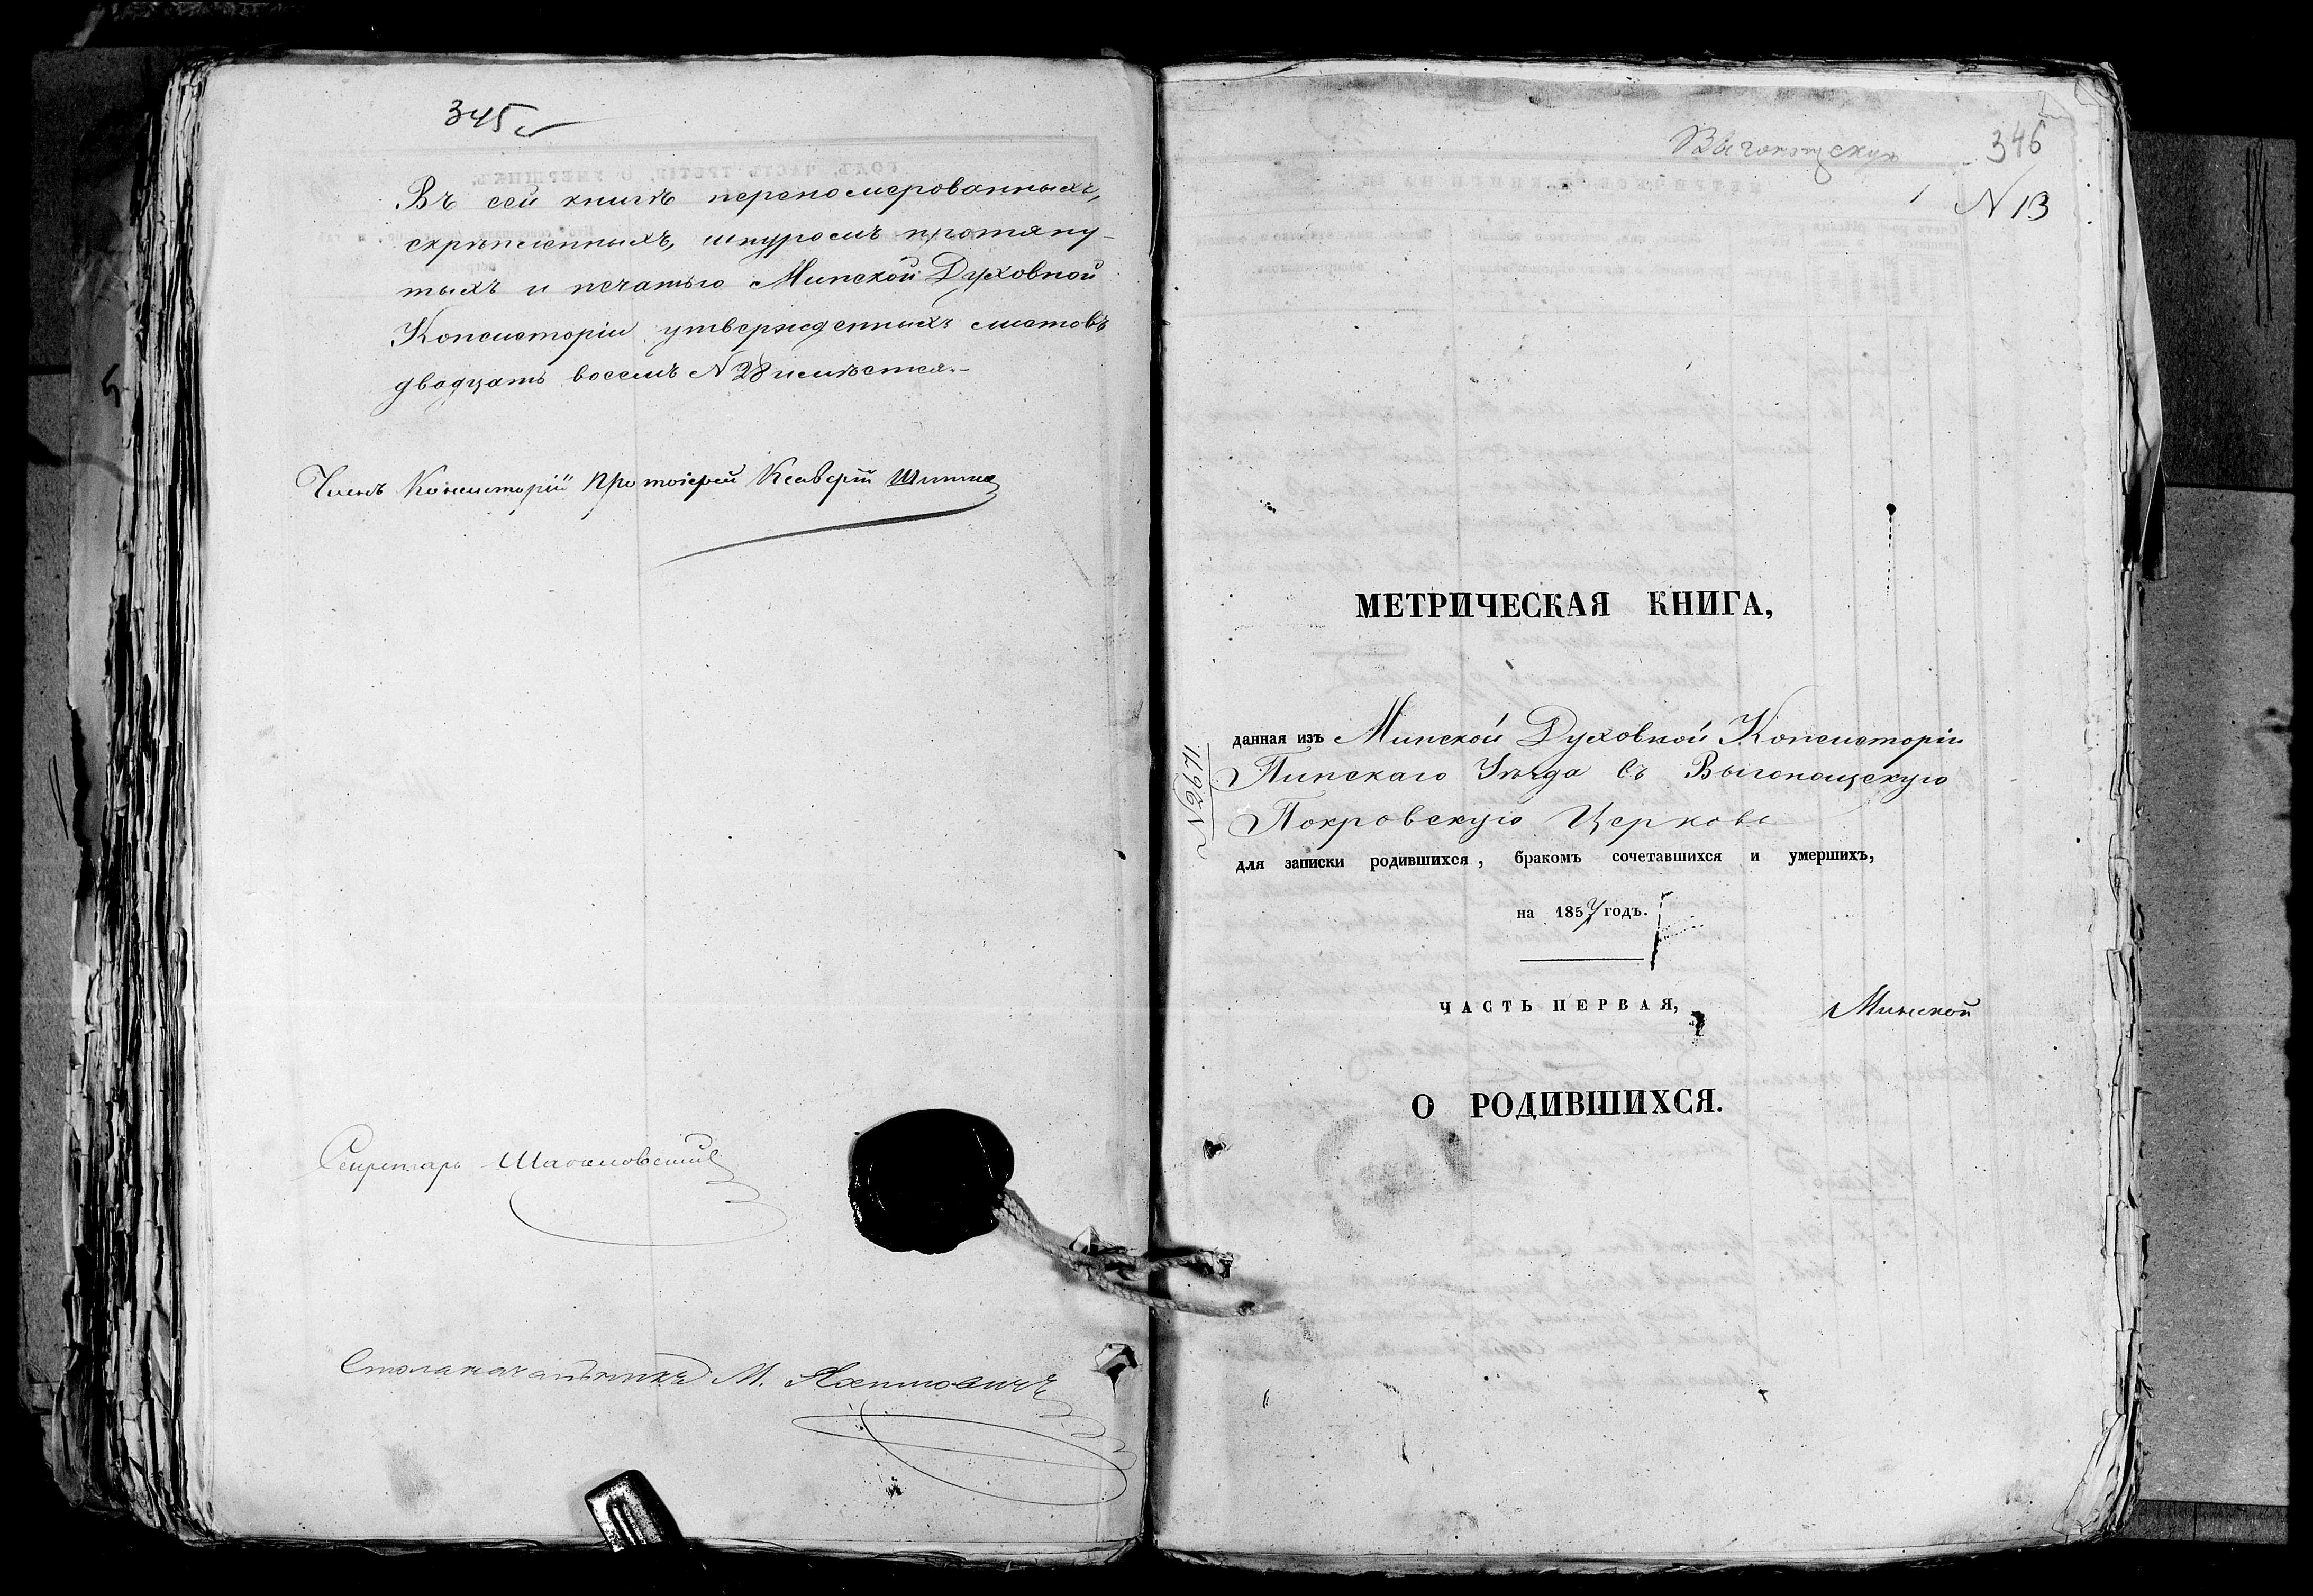 345
Въ сей книгѣ переномерованныхъ,
скрѣпленныхъ, шнуромъ протяну-
тыхъ и печатью Минской Духовной
Консисторіи утвержденныхъ листовъ
двадцать восемь N 28 имѣется.-
Членъ Консисторіи Протоіерей Ксаверій
Секретарь
Столоначальникъ М.
Выгонощскую
346
1
N 13
МЕТРИЧЕСКАЯ КНИГА,
N 2671.
данная изъ Минской Духовной Консисторіи
Пинскаго Уѣзда въ Выгонощскую
Покровскую Церковь
для записки родившихся, бракомъ сочетавшихся и умершихъ,
на 1857 годъ.
ЧАСТЬ ПЕРВАЯ,
Минской
О РОДИВШИХСЯ.